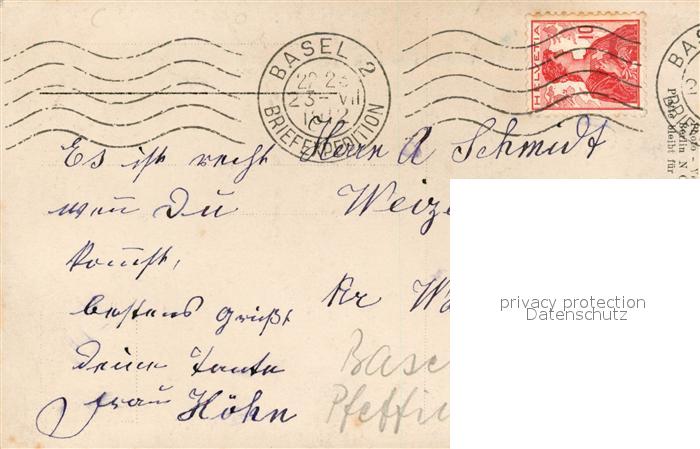 BASEL 2
23-VII
BRIEFEXPEDITION
HELVETIA
10
BAS
Berlin N
Platte bleibt für
Es ist recht
wenn Du
kommst,
bestens grüßt
deine Tante
Frau Höhn
Herrn A Schmidt
Weize
Kr W
Base
Pfeffi
privacy protection
Datenschutz